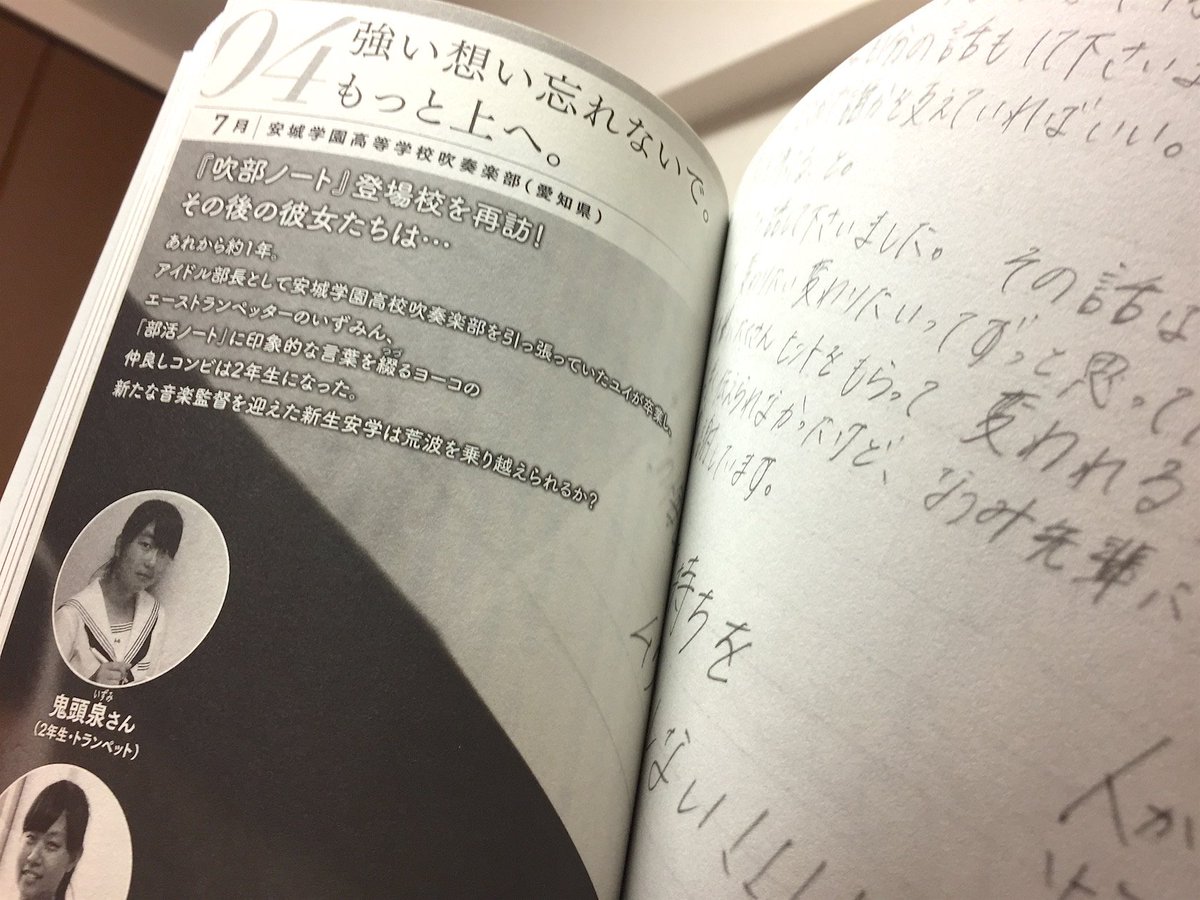 04
強い想い忘れないで。
もっと上へ。
7月 安城学園高等学校吹奏楽部(愛知県)
『吹部ノート』登場校を再訪!
その後の彼女たちは…
あれから約1年。
アイドル部長として安城学園高校吹奏楽部を引っ張っていたユイが卒業し、
エーストランペッターのいずみん、
「部活ノート」に印象的な言葉を綴るヨーコの
つづ
仲良しコンビは2年生になった。
新たな音楽監督を迎えた新生安学は荒波を乗り越えられるか?
いずみ
鬼頭泉さん
(2年生・トランペット)
の話もして下さいま
を支えていればいい。
して下さいました。 その話は
変わりたいってずっと思って
ヒントをもらって 変われる
られなかったけど、なつみ先輩に
しています。
持ちを
ない
人か